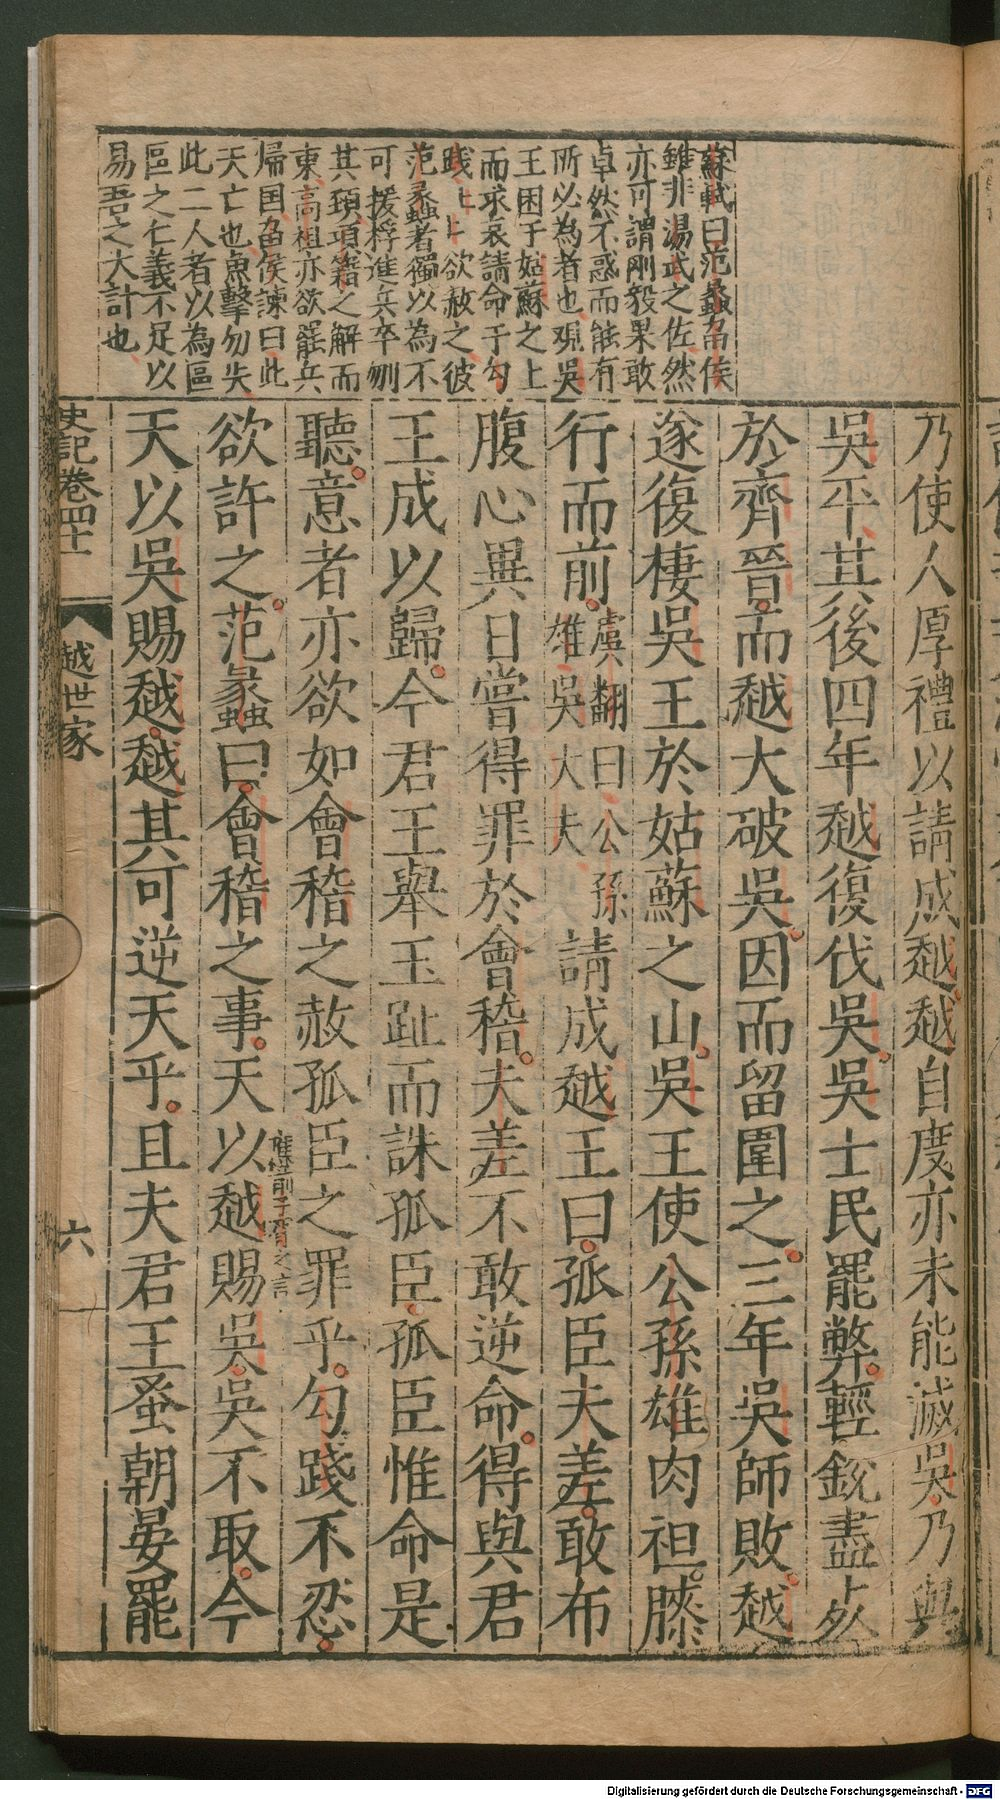 蘇軾曰范蠡畱侯
雖非湯武之佐然
亦可謂剛毅果敢
卓然不惑而能有
所必為者也觀吴
王困于姑蘇之上
而求哀請命于勾
践ヒヒ欲赦之彼
范蠡者獨以為不
可援桴進兵卒刎
其頚項籍之解而
東高祖亦欲罷兵
帰国畱侯諌曰此
天亡也急擊勿失
此二人者以為區
區之仁義不足以
易吾之大計也
乃使人厚禮以請成越越自度亦未能滅吳乃與
吳平其後四年越復伐吳吳士民罷弊輕銳盡死
於齊晉而越大破吳因而留圍之三年吳師敗越
遂復棲吳王於姑蘇之山吳王使公孫雄肉袒膝
行而前虞翻曰公孫雄吳大夫請成越王曰孤臣夫差敢布
腹心異日嘗得罪於會稽夫差不敢逆命得與君
王成以歸今君王舉玉趾而誅孤臣孤臣惟命是
聽意者亦欲如會稽之赦孤臣之罪乎勾踐不忍
欲許之范蠡曰會稽之事天以越賜吳吳不取今
應前子胥之言
天以吳賜越越其可逆天乎且夫君王蚤朝晏罷
史記卷四十一
越世家
六
Digitalisierung gefördert durch die Deutsche Forschungsgemeinschaft - DFG